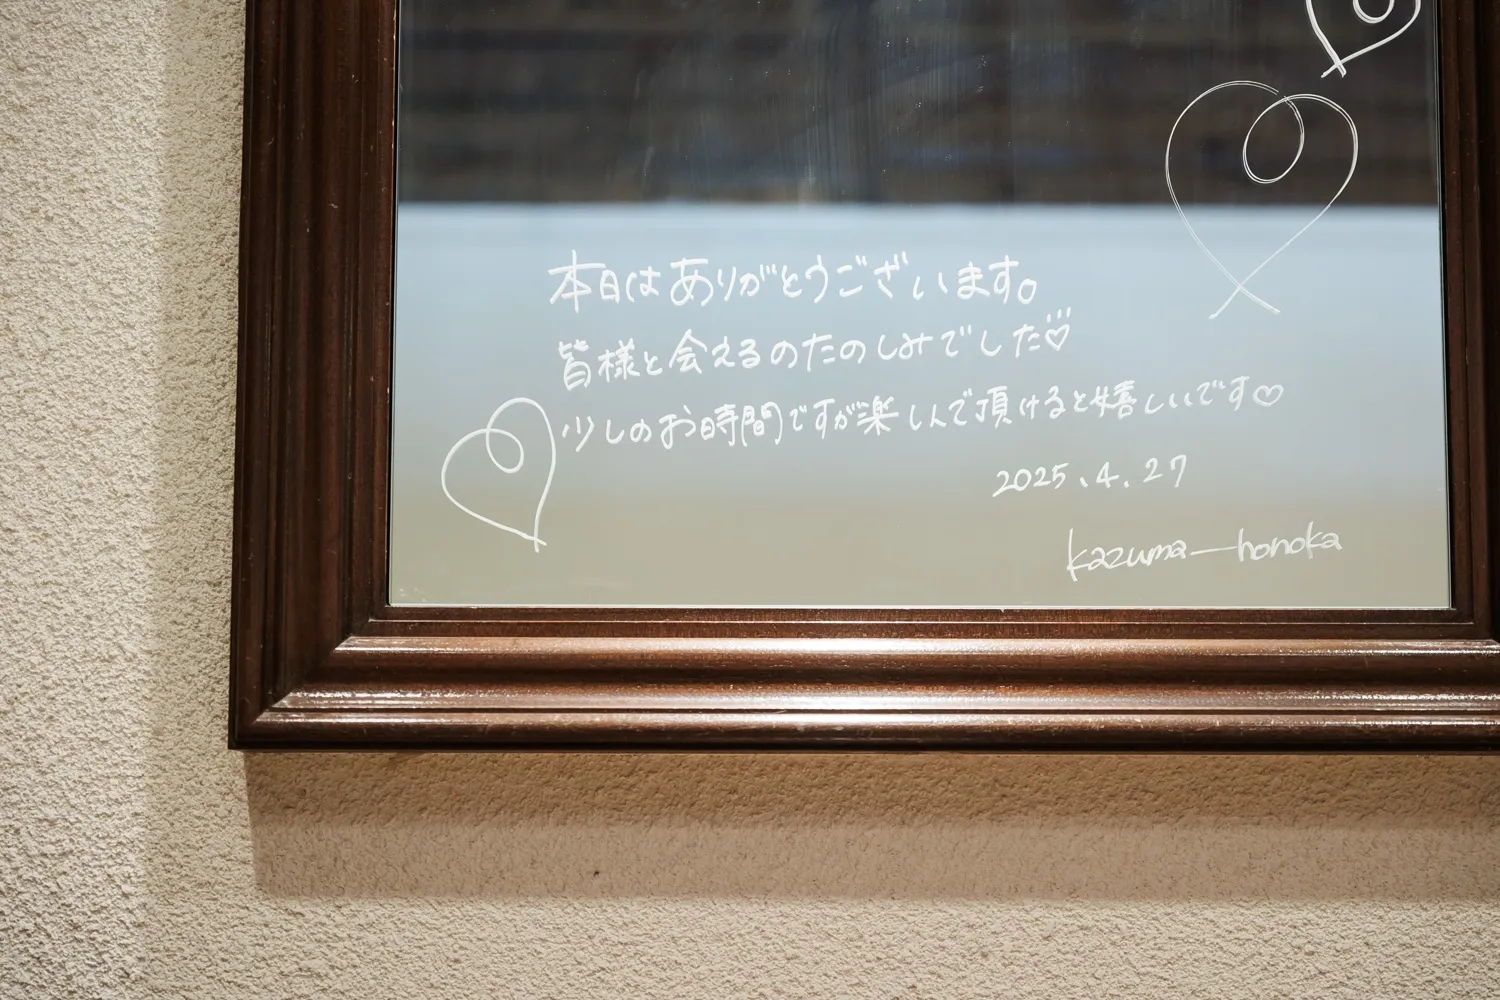 本日はありがとうございます。
皆様と会えるのたのしみでした♡
少しのお時間ですが楽しんで頂けると嬉しいです♡
2025.4.27
kazuma—honoka